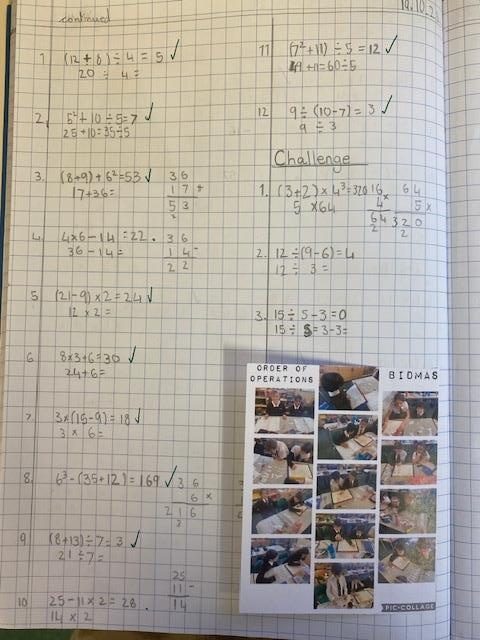 19.10.2
continued
1 (12 + 8) ÷ 4 = 5 ✓
20 ÷ 4 =
2. 5² + 10 ÷ 5 = 7 ✓
25 + 10 = 35 ÷ 5
3. (8+9) + 6² = 53 ✓
17 + 36 =
36
17 +
53
4. 4x6 - 14 = 22 .
36 - 14 =
36
14 -
22
5 (21-9) x 2 = 24 ✓
12 x 2 =
6 8x3+6=30 ✓
24+6=
7. 3x(15-9) = 18 ✓
3 x 6 =
8. 6³ - (35+12) = 169 ✓
36
6 x
216
3
9 (8+13) ÷ 7 = 3 ✓
21 ÷ 7 =
10 25 - 11 x 2 = 28 .
14 x 2
25
11 -
14
11 (7² + 11) ÷ 5 = 12 ✓
49 + 11 = 60 ÷ 5
12 9 ÷ (10-7) = 3 ✓
9 ÷ 3
Challenge
1. (3+2) x 4³ = 320
5 x 64
16
4 x
64
2
64
5 x
320
2
2. 12 ÷ (9-6) = 4
12 ÷ 3 =
3. 15 ÷ 5 - 3 = 0
15 ÷ 5 = 3 - 3 =
ORDER OF
OPERATIONS
BIDMAS
PIC•COLLAGE